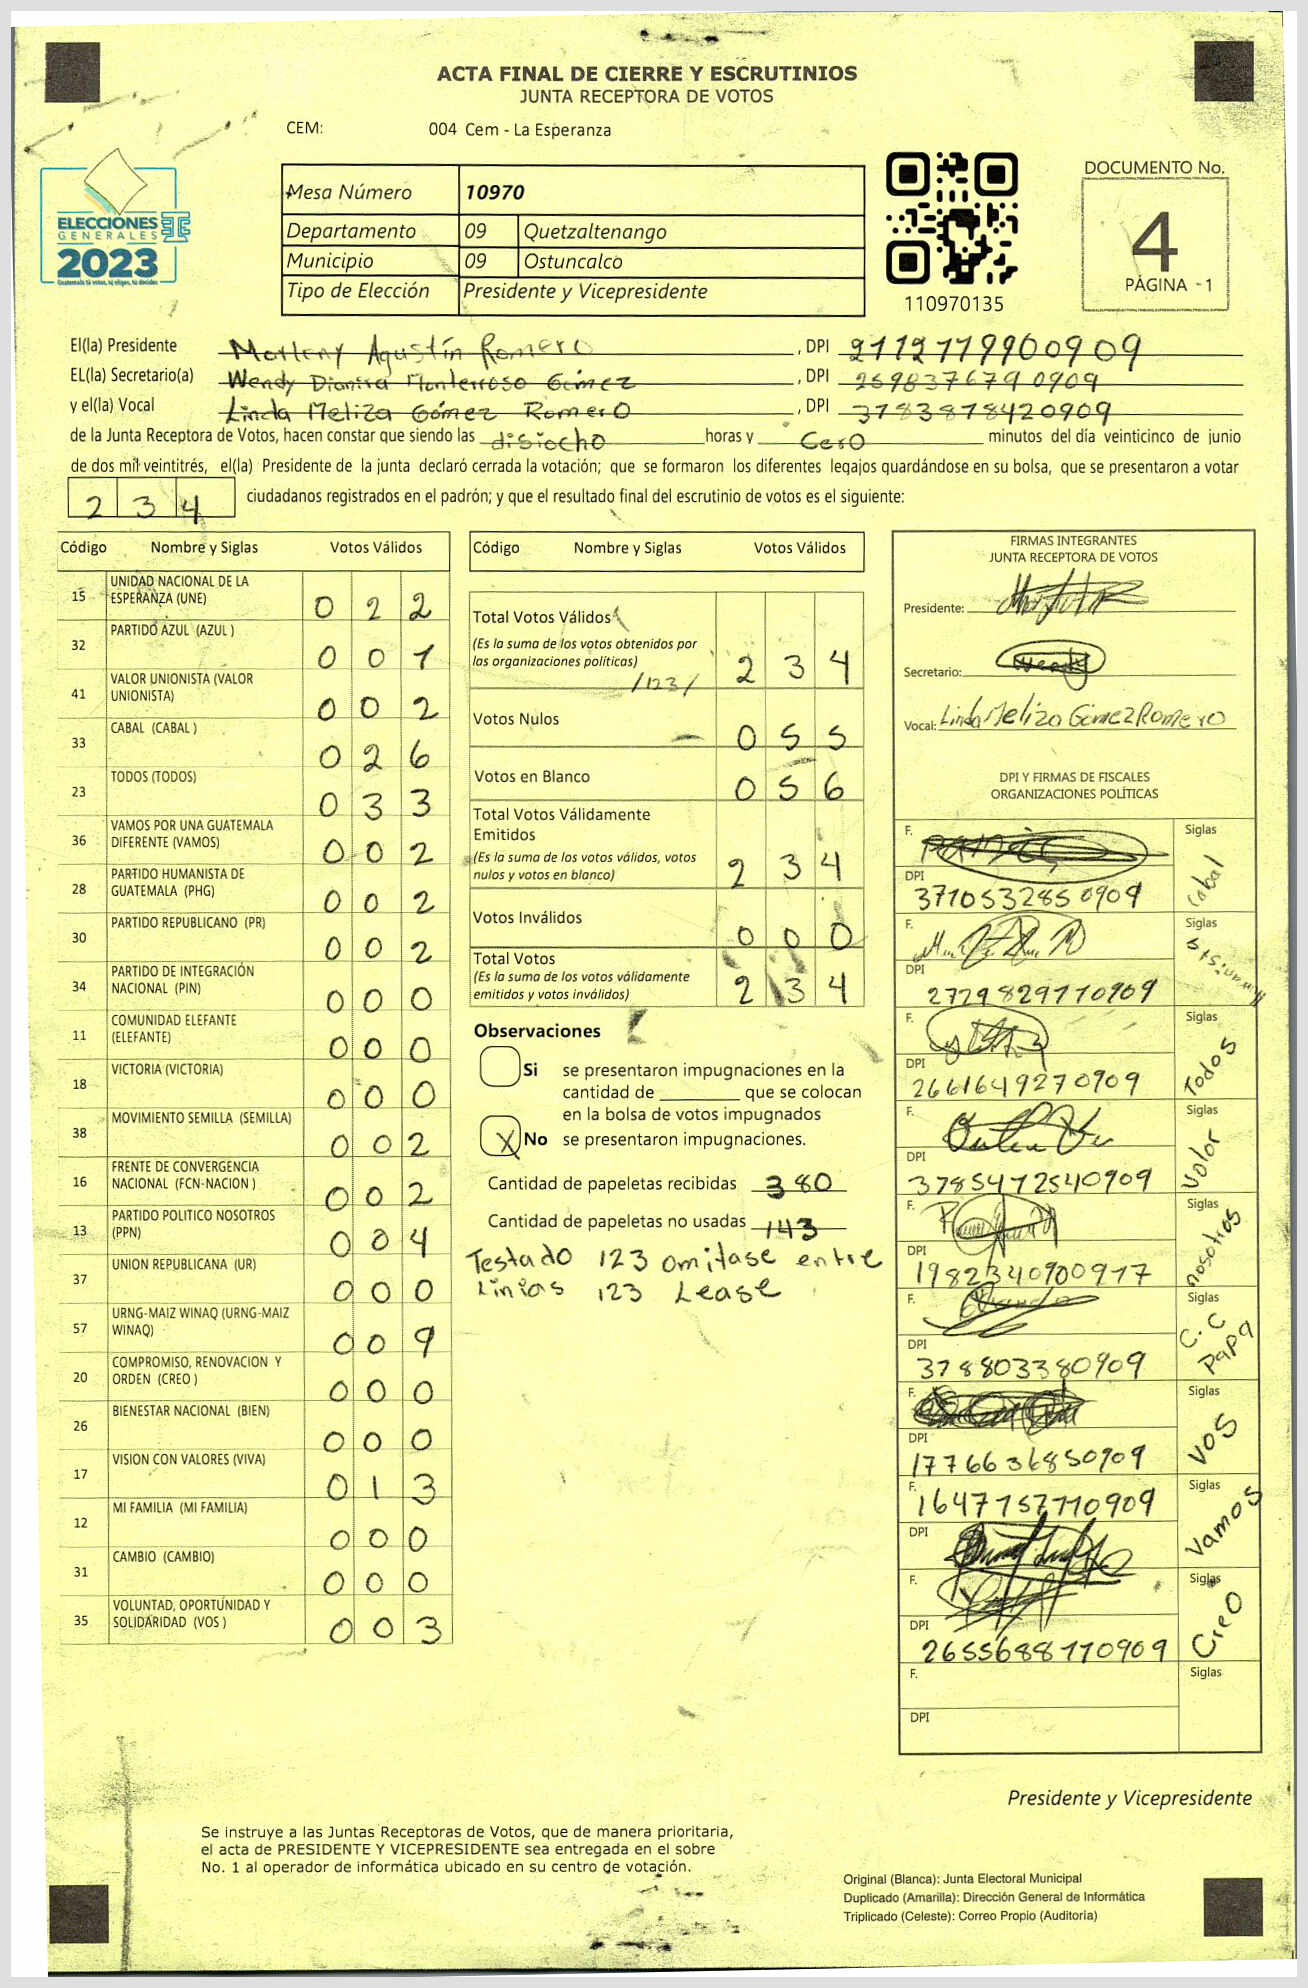 ACTA FINAL DE CIERRE Y ESCRUTINIOS
JUNTA RECEPTORA DE VOTOS
CEM: 004 Cem - La Esperanza
ELECCIONES
GENERALES
2023
Mesa Número 10970
Departamento 09 Quetzaltenango
Municipio 09 Ostuncalco
Tipo de Elección Presidente y Vicepresidente
110970135
DOCUMENTO No.
4
PÁGINA - 1
El(la) Presidente Marleny Agustín Romero , DPI 2112119900909
EL(la) Secretario(a) Wendy Dionisa Monterroso Gómez , DPI 2598376790909
y el(la) Vocal Linda Meliza Gómez Romero , DPI 3783878420909
de la Junta Receptora de Votos, hacen constar que siendo las disiocho horas y Cero minutos del día veinticinco de junio
de dos mil veintitrés, el(la) Presidente de la junta declaró cerrada la votación; que se formaron los diferentes legajos guardándose en su bolsa, que se presentaron a votar
234 ciudadanos registrados en el padrón; y que el resultado final del escrutinio de votos es el siguiente:
Código Nombre y Siglas Votos Válidos
15 UNIDAD NACIONAL DE LA ESPERANZA (UNE) 0 2 2
32 PARTIDO AZUL (AZUL ) 0 0 1
41 VALOR UNIONISTA (VALOR UNIONISTA) 0 0 2
33 CABAL (CABAL ) 0 2 6
23 TODOS (TODOS) 0 3 3
36 VAMOS POR UNA GUATEMALA DIFERENTE (VAMOS) 0 0 2
28 PARTIDO HUMANISTA DE GUATEMALA (PHG) 0 0 2
30 PARTIDO REPUBLICANO (PR) 0 0 2
34 PARTIDO DE INTEGRACIÓN NACIONAL (PIN) 0 0 0
11 COMUNIDAD ELEFANTE (ELEFANTE) 0 0 0
18 VICTORIA (VICTORIA) 0 0 0
38 MOVIMIENTO SEMILLA (SEMILLA) 0 0 2
16 FRENTE DE CONVERGENCIA NACIONAL (FCN-NACION ) 0 0 2
13 PARTIDO POLITICO NOSOTROS (PPN) 0 0 4
37 UNION REPUBLICANA (UR) 0 0 0
57 URNG-MAIZ WINAQ (URNG-MAIZ WINAQ) 0 0 9
20 COMPROMISO, RENOVACION Y ORDEN (CREO ) 0 0 0
26 BIENESTAR NACIONAL (BIEN) 0 0 0
17 VISION CON VALORES (VIVA) 0 1 3
12 MI FAMILIA (MI FAMILIA) 0 0 0
31 CAMBIO (CAMBIO) 0 0 0
35 VOLUNTAD, OPORTUNIDAD Y SOLIDARIDAD (VOS ) 0 0 3
Código Nombre y Siglas Votos Válidos
Total Votos Válidos
(Es la suma de los votos obtenidos por
las organizaciones políticas) 2 3 4
/123/
Votos Nulos 0 5 5
Votos en Blanco 0 5 6
Total Votos Válidamente
Emitidos
(Es la suma de los votos válidos, votos
nulos y votos en blanco) 2 3 4
Votos Inválidos 0 0 0
Total Votos
(Es la suma de los votos válidamente
emitidos y votos inválidos) 2 3 4
Observaciones
Si se presentaron impugnaciones en la
cantidad de ________ que se colocan
en la bolsa de votos impugnados
X No se presentaron impugnaciones.
Cantidad de papeletas recibidas 380
Cantidad de papeletas no usadas 143
Testado 123 omitase entre
linias 123 Lease
FIRMAS INTEGRANTES
JUNTA RECEPTORA DE VOTOS
Presidente:
Secretario: Wendy
Vocal: Linda Meliza Gómez Romero
DPI Y FIRMAS DE FISCALES
ORGANIZACIONES POLÍTICAS
F. Siglas Cabal
DPI 3710532850909
F. Siglas
DPI 2729829770909
F. Siglas Todos
DPI 2661649270909
F. Siglas Valor
DPI 3785472540909
F. Siglas nosotros
DPI 1982340900917
F. Siglas C.C Papa
DPI 378803380909
F. Siglas VOS
DPI 1776636850909
F. 1647757710909 Siglas Vamos
DPI
F. Siglas CreO
DPI 2655688770909
F. Siglas
DPI
Presidente y Vicepresidente
Se instruye a las Juntas Receptoras de Votos, que de manera prioritaria,
el acta de PRESIDENTE Y VICEPRESIDENTE sea entregada en el sobre
No. 1 al operador de informática ubicado en su centro de votación.
Original (Blanca): Junta Electoral Municipal
Duplicado (Amarilla): Dirección General de Informática
Triplicado (Celeste): Correo Propio (Auditoria)